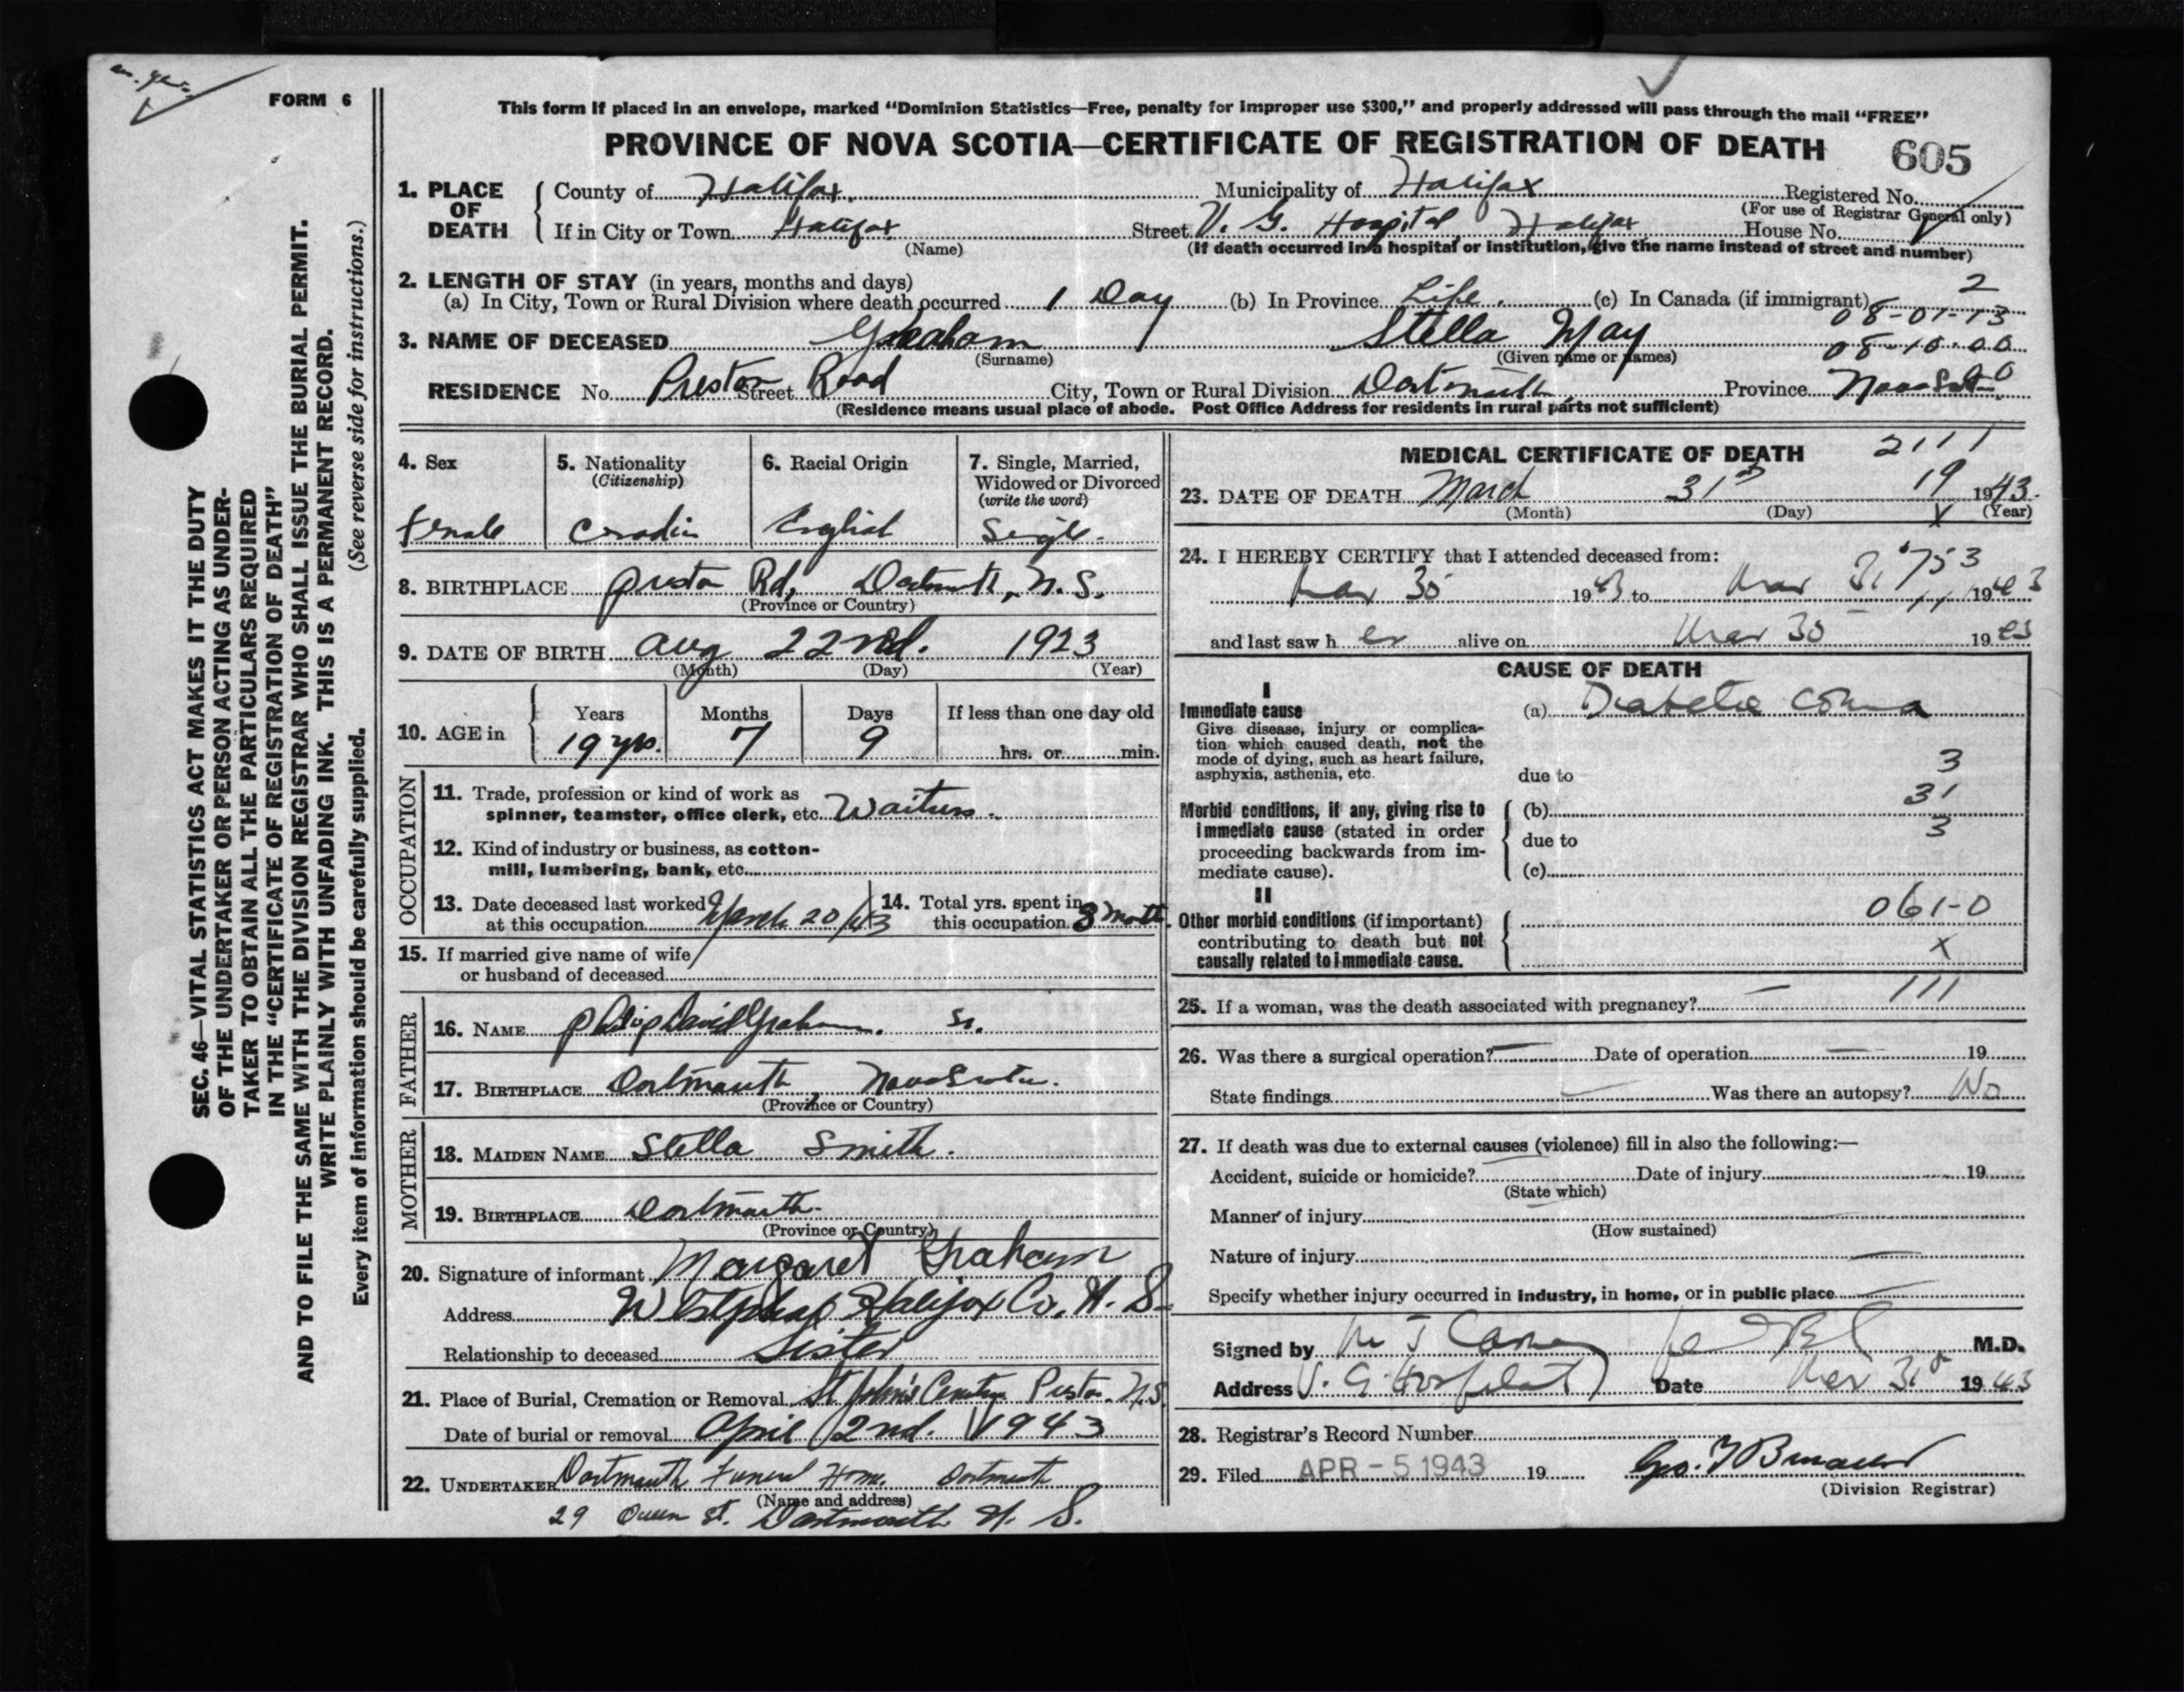 FORM 6
This form if placed in an envelope, marked “Dominion Statistics—Free, penalty for improper use $300,” and properly addressed will pass through the mail “FREE”
PROVINCE OF NOVA SCOTIA—CERTIFICATE OF REGISTRATION OF DEATH 605
1. PLACE OF DEATH
County of Halifax. Municipality of Halifax Registered No.
(For use of Registrar General only)
If in City or Town Halifax Street V. G. Hospital, Halifax House No.
(Name) (If death occurred in a hospital or institution, give the name instead of street and number)
2. LENGTH OF STAY (in years, months and days)
(a) In City, Town or Rural Division where death occurred 1 Day (b) In Province Life. (c) In Canada (if immigrant) 2
08-01-13
3. NAME OF DECEASED Graham Stella May 08-10-00
(Surname) (Given name or names)
RESIDENCE No. Preston Street Road City, Town or Rural Division Dartmouth, Province Nova
(Residence means usual place of abode. Post Office Address for residents in rural parts not sufficient)
4. Sex
Female
5. Nationality
(Citizenship)
6. Racial Origin
English
7. Single, Married, Widowed or Divorced
(write the word)
Single.
8. BIRTHPLACE Preston Rd, Dartmouth, N.S.
(Province or Country)
9. DATE OF BIRTH Aug 22nd. 1923
(Month) (Day) (Year)
10. AGE in
Years Months Days If less than one day old
19 yrs. 7 9 hrs. or min.
OCCUPATION
11. Trade, profession or kind of work as
spinner, teamster, office clerk, etc. Waitress.
12. Kind of industry or business, as cotton-
mill, lumbering, bank, etc.
13. Date deceased last worked
at this occupation March 20/43
14. Total yrs. spent in
this occupation 3 month
15. If married give name of wife
or husband of deceased
FATHER
16. NAME Philip David Graham. Sr.
17. BIRTHPLACE Dartmouth, Nova Scotia.
(Province or Country)
MOTHER
18. MAIDEN NAME Stella Smith.
19. BIRTHPLACE Dartmouth.
(Province or Country)
20. Signature of informant Margaret Graham
Address Westphal Halifax Co. N. S.
Relationship to deceased Sister
21. Place of Burial, Cremation or Removal St John's Cemetery Preston N.S.
Date of burial or removal April 2nd. 1943
22. UNDERTAKER Dartmouth Funeral Home. Dartmouth
(Name and address)
29 Queen St. Dartmouth N. S.
MEDICAL CERTIFICATE OF DEATH 2111
23. DATE OF DEATH March 31st 19 1943.
(Month) (Day) (Year)
X
24. I HEREBY CERTIFY that I attended deceased from:
753
Mar 30 1943 to Mar 31 1943
11
and last saw h er alive on Mar 30 1943
CAUSE OF DEATH
I
Immediate cause
Give disease, injury or complica-
tion which caused death, not the
mode of dying, such as heart failure,
asphyxia, asthenia, etc.
(a) Diabetic Coma
3
due to
31
Morbid conditions, if any, giving rise to
immediate cause (stated in order
proceeding backwards from im-
mediate cause).
(b)
3
due to
(c)
II
Other morbid conditions (if important)
contributing to death but not
causally related to immediate cause.
061-0
X
111
25. If a woman, was the death associated with pregnancy? —
26. Was there a surgical operation? — Date of operation — 19
State findings — Was there an autopsy? No
27. If death was due to external causes (violence) fill in also the following:—
Accident, suicide or homicide? Date of injury 19
(State which)
Manner of injury
(How sustained)
Nature of injury —
Specify whether injury occurred in industry, in home, or in public place —
Signed by M.D.
Address V. G. Hospital Date Mar 31st 1943
28. Registrar's Record Number
29. Filed APR - 5 1943 19
(Division Registrar)
SEC. 46—VITAL STATISTICS ACT MAKES IT THE DUTY
OF THE UNDERTAKER OR PERSON ACTING AS UNDER-
TAKER TO OBTAIN ALL THE PARTICULARS REQUIRED
IN THE “CERTIFICATE OF REGISTRATION OF DEATH”
AND TO FILE THE SAME WITH THE DIVISION REGISTRAR WHO SHALL ISSUE THE BURIAL PERMIT.
WRITE PLAINLY WITH UNFADING INK. THIS IS A PERMANENT RECORD.
Every item of information should be carefully supplied. (See reverse side for instructions.)